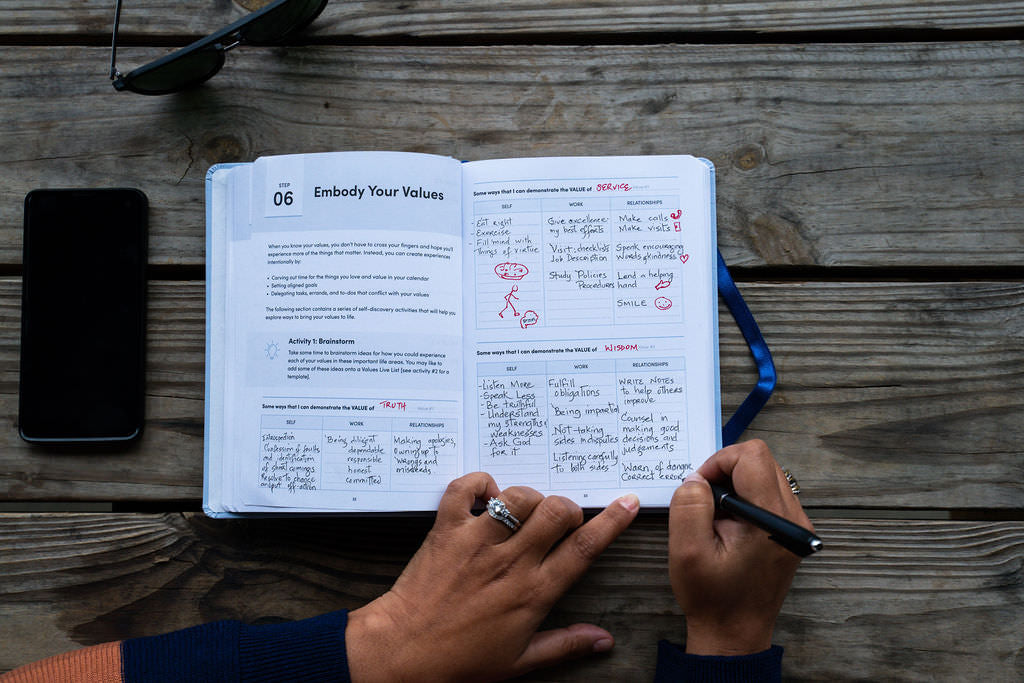 STEP
06
Embody Your Values
When you know your values, you don't have to cross your fingers and hope you'll
experience more of the things that matter. Instead, you can create experiences
intentionally by:
• Carving out time for the things you love and value in your calendar
• Setting aligned goals
• Delegating tasks, errands, and to-dos that conflict with your values
The following section contains a series of self-discovery activities that will help you
explore ways to bring your values to life.
Activity 1: Brainstorm
Take some time to brainstorm ideas for how you could experience
each of your values in these important life areas. You may like to
add some of these ideas onto a Values Live List [see activity #2 for a
template].
Some ways that I can demonstrate the VALUE of TRUTH Value #1
SELF
Introspection
Confession of faults
and identification
of short comings
Resolve to change
WORK
Being diligent
dependable
responsible
honest
committed
RELATIONSHIPS
Making apologies,
Owning up to
wrongs and
misdeeds
Some ways that I can demonstrate the VALUE of SERVICE
SELF
- Eat right
- Exercise
- Fill mind with
things of virtue
WORK
Give excellence-
my best efforts
Visit: checklists
Job Description
Study Policies
Procedures
RELATIONSHIPS
Make calls
Make visits
Speak encouraging
Words of kindness
Lend a helping
hand
SMILE
Some ways that I can demonstrate the VALUE of WISDOM
SELF
- Listen More
- Speak Less
- Be truthful
- Understand
my strengths
weaknesses
- Ask God
for it
WORK
Fulfill
obligations
Being impartial
Not taking
sides in disputes
Listening carefully
to both sides
RELATIONSHIPS
WRITE NOTES
to help others
improve
Counsel in
making good
decisions and
judgements
Warn of danger
Correct errors